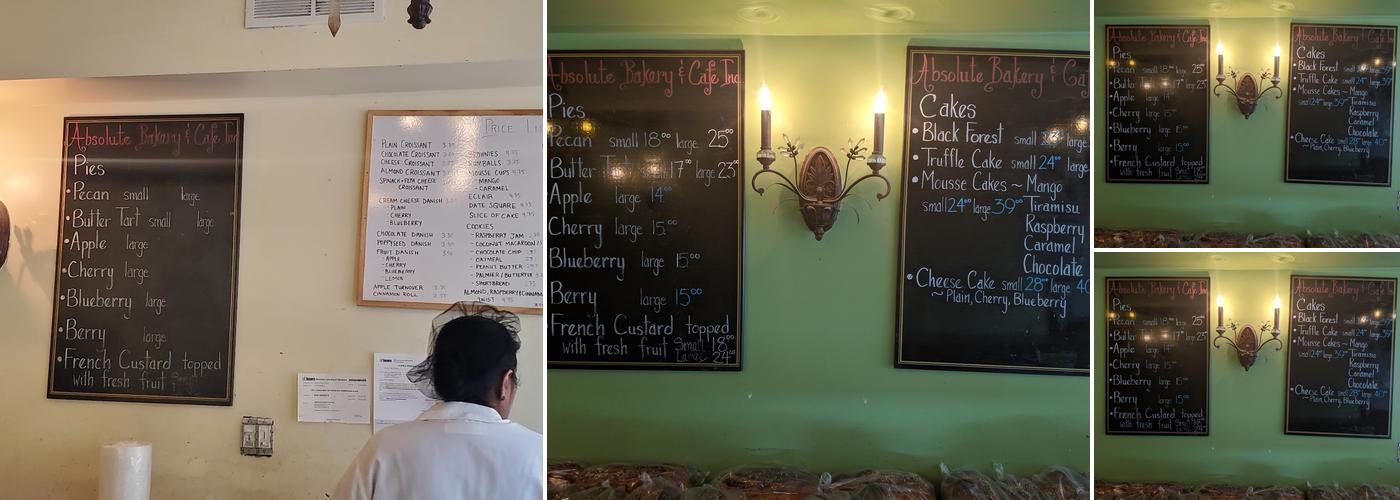 Absolute Bakery & Cafe Inc
Pies
• Pecan small large
• Butter Tart small large
• Apple large
• Cherry large
• Blueberry large
• Berry large
• French Custard topped
with fresh fruit
PRICE
PLAIN CROISSANT
CHOCOLATE CROISSANT
CHEESE CROISSANT
ALMOND CROISSANT
SPINACH + FETA CHEESE
CROISSANT
CREAM CHEESE DANISH
- PLAIN
- CHERRY
- BLUEBERRY
CHOCOLATE DANISH
POPPYSEED DANISH
FRUIT DANISH
- APPLE
- CHERRY
- BLUEBERRY
- LEMON
APPLE TURNOVER
CINNAMON ROLL
MOUSSE CUPS
- MANGO
- CARAMEL
ECLAIR
DATE SQUARE
SLICE OF CAKE
COOKIES
- RASPBERRY JAM
- COCONUT MACAROON
- CHOCOLATE CHIP
- OATMEAL
- PEANUT BUTTER
- SHORTBREAD
TWIST
Absolute Bakery & Cafe Inc.
Pies
Pecan small 18⁰⁰ large 25⁰⁰
Butter Tart small 17⁰⁰ large 23⁰⁰
Apple large 14
Cherry large 15⁰⁰
Blueberry large 15⁰⁰
Berry large 15⁰⁰
French Custard topped
with fresh fruit Small 18⁰⁰
Large 24⁰⁰
Absolute Bakery & Caf
Cakes
• Black Forest small large
• Truffle Cake small 24⁰⁰ large
• Mousse Cakes ~ Mango
small 24⁰⁰ large 39⁰⁰ Tiramisu
Raspberry
Caramel
Chocolate
• Cheese Cake small 28⁰⁰ large 40
~ Plain, Cherry, Blueberry
Absolute Bakery & Cafe Inc.
Pies
Pecan small 18⁰⁰ large 25⁰⁰
• Apple large
• Cherry large 15⁰⁰
• Blueberry large 15⁰⁰
• Berry large 15⁰⁰
• French Custard topped
with fresh fruit
Absolute Bakery & Cafe Inc.
Cakes
• Black Forest small large
• Truffle Cake small 24⁰⁰ large
• Mousse Cakes ~ Mango
small 24⁰⁰ large 39⁰⁰ Tiramisu
Raspberry
Caramel
Chocolate
• Cheese Cake small 28⁰⁰ large 40⁰⁰
~ Plain, Cherry, Blueberry
Absolute Bakery & Cafe Inc.
Pies
Pecan small 18⁰⁰ large 25⁰⁰
• Apple large 14
• Cherry large 15⁰⁰
• Blueberry large 15⁰⁰
• Berry large 15⁰⁰
• French Custard topped
with fresh fruit
Absolute Bakery & Cafe Inc.
Cakes
• Black Forest small large
• Truffle Cake small 24⁰⁰ large
• Mousse Cakes ~ Mango
small 24⁰⁰ large 39⁰⁰ Tiramisu
Raspberry
Caramel
Chocolate
• Cheese Cake small 28⁰⁰ large 40⁰⁰
~ Plain, Cherry, Blueberry